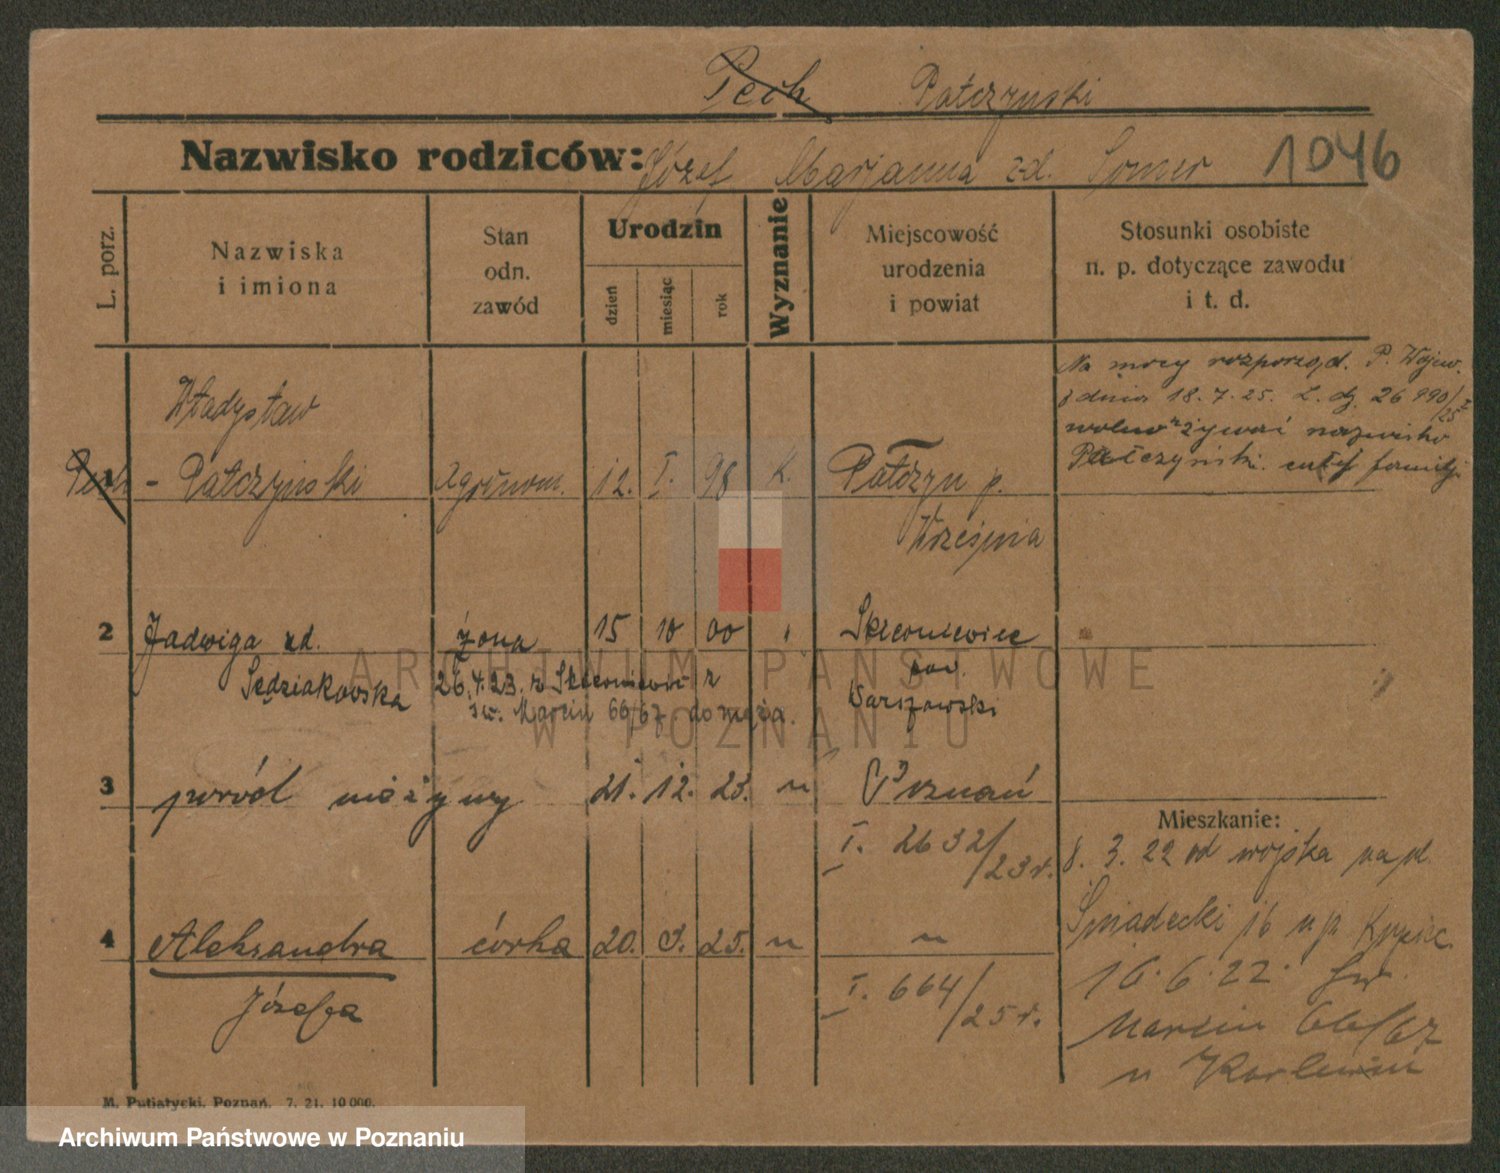 Pech Patczynski
Nazwisko rodziców: Józef Marjanna z d. Somer 1046
L. porz.
Nazwiska
i imiona
Stan
odn.
zawód
Urodzin
dzień
miesiąc
rok
Wyznanie
Miejscowość
urodzenia
i powiat
Stosunki osobiste
n. p. dotyczące zawodu
i t. d.
Na mocy rozporząd. P. Wojew.
z dnia 18.7.25. L. dz. 26990/25 I
wolno używać nazwisko
Pałczyński. całej familji
Władysław
1 Pech - Patczyński Agronom. 12. I. 98 K. Patczyn p.
Września
2 Jadwiga zd. żona 15 10 00 " Skierniewiec
Sędziakowska 26.4.23. z Skierniewic z pow.
św. Marcin 66/67 do męża. Warszawski
3 poród nieżywy 21. 12. 23. " Poznań
I. 2632/23 r.
Mieszkanie:
8. 3. 22 od wojska na pl.
Śniadecki 16 u p.
16.6.22. św.
Marcin 66/67
u
4 Aleksandra córka 20. 3. 25. " "
Józefa
I. 664/25 r.
M. Putiatycki, Poznań. 7. 21. 10 000.
ARCHIWUM PAŃSTWOWE
W POZNANIU
Archiwum Państwowe w Poznaniu